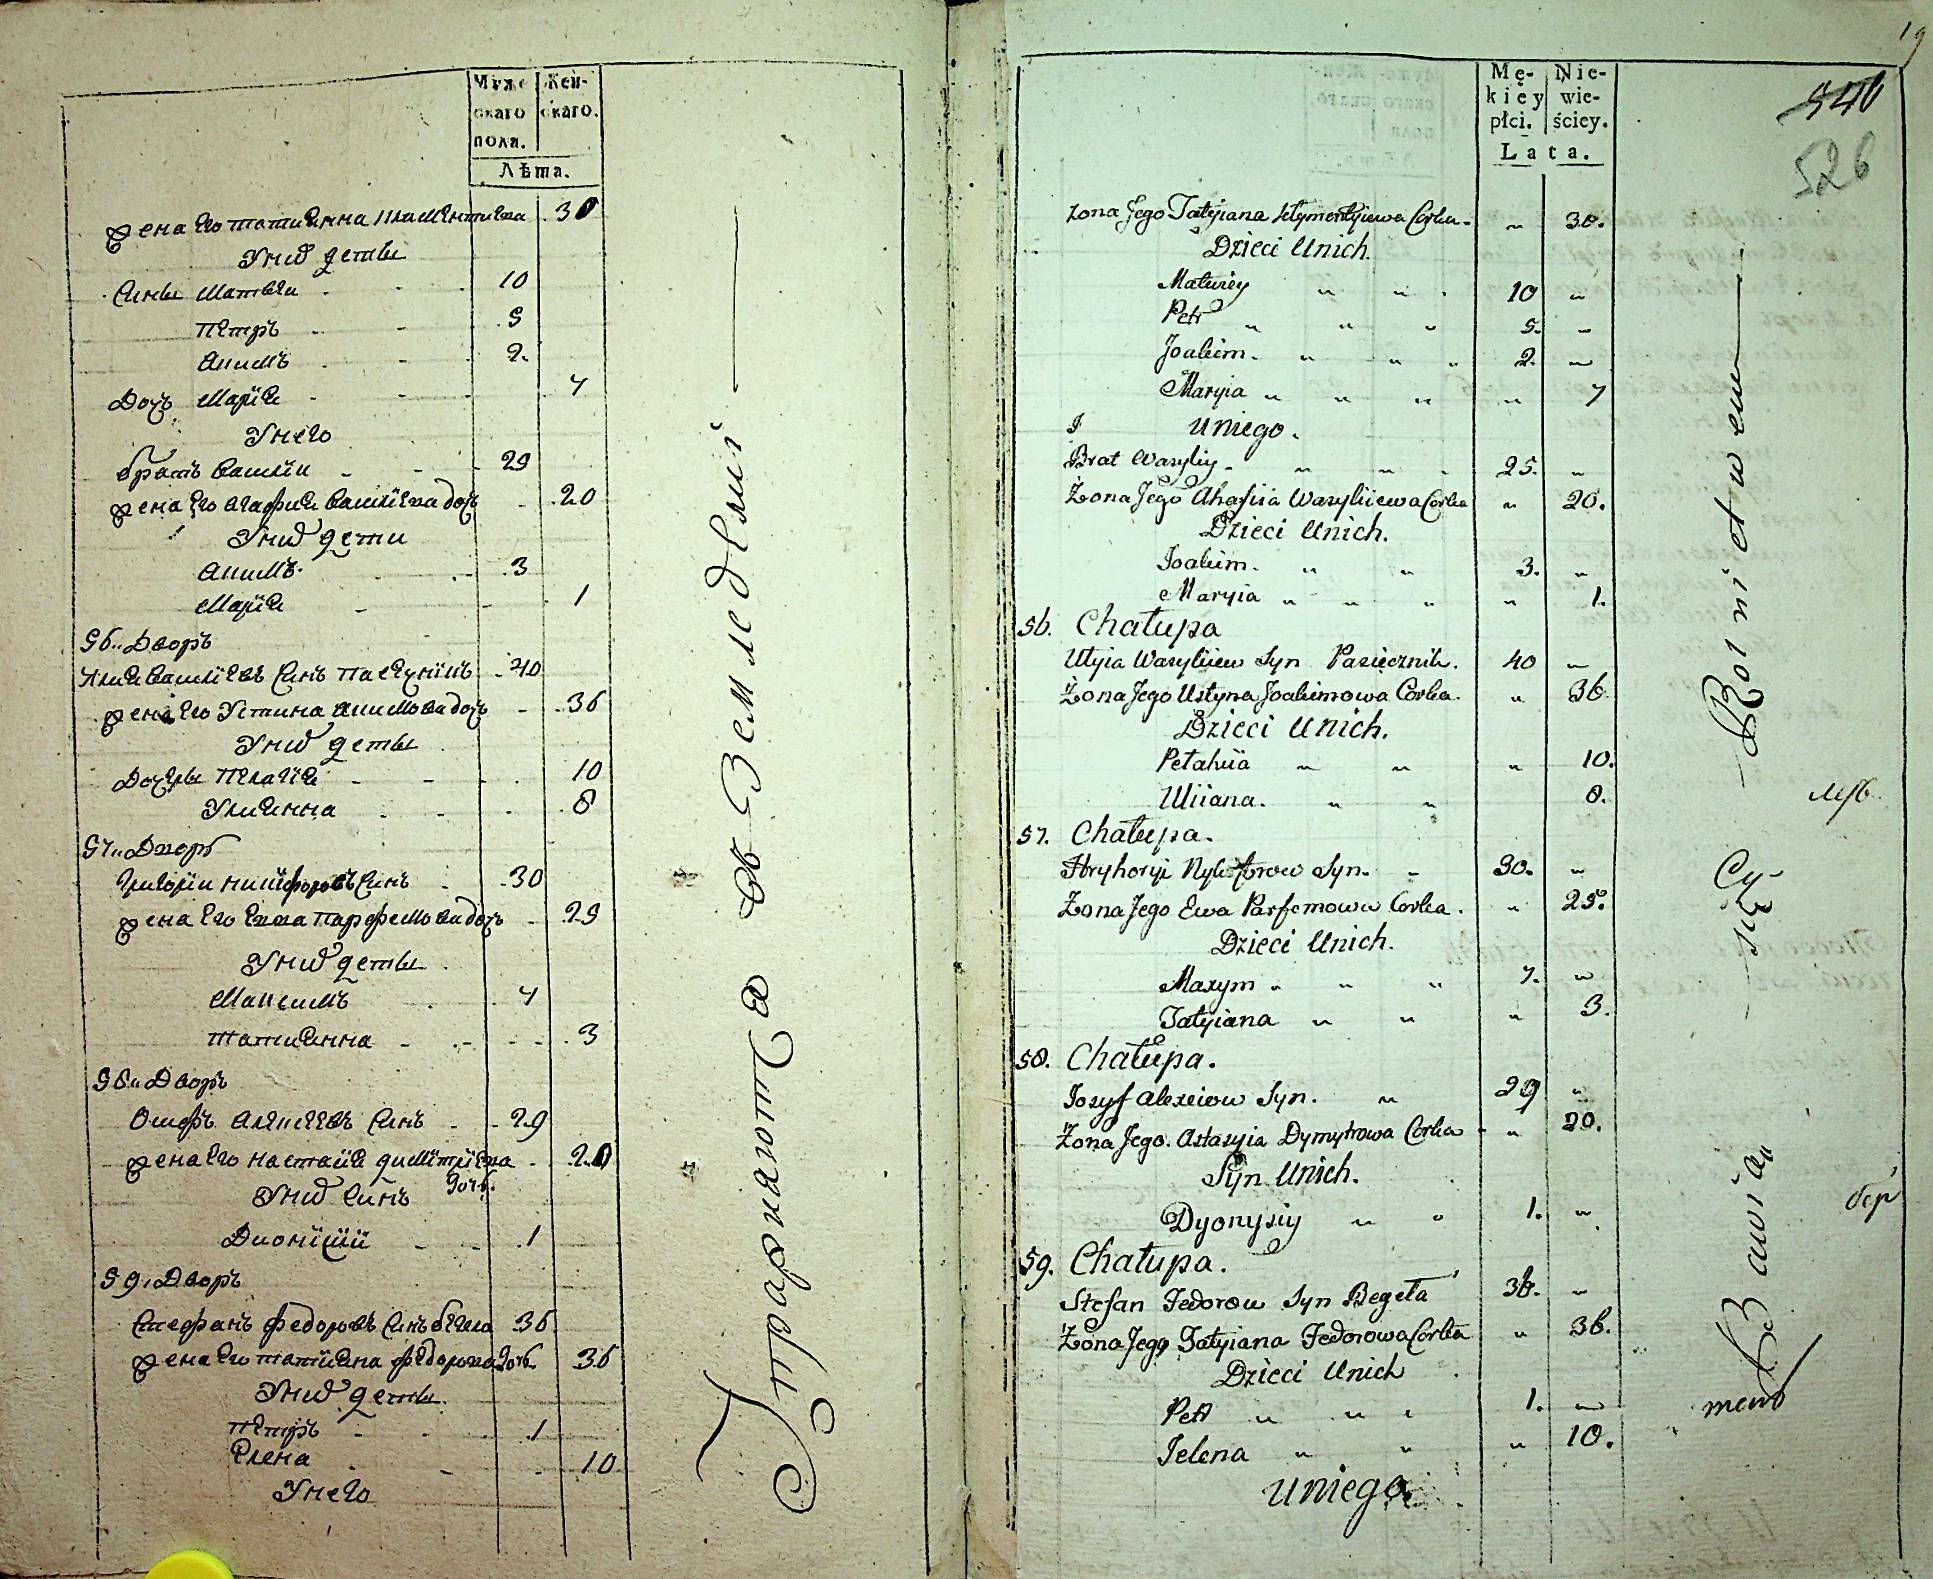 Муже
скаго
поля.
Жен-
скаго.
Лѣта.
жена Его татиянна Климентиева 30
Унив дѣти
Сины Матвѣи 10
Петръ 5
Акимъ 2.
Дочъ Марїя 7
Унего
братъ Василїи 25
жена Его Агафия Василїева дочъ 20
Унив дети
Акимъ 3
Марїя 1
56. Дворъ
Илия Василїевъ Синъ Пасечникъ 40
жена Его Устина Акимова дочъ 36
Унив дети
Дочеры Пелагїя 10
Улиянна 8
57. Дворъ
Григорїи Никифоровъ Синъ 30
жена Его Евва Парфемова дочъ 25
Унив дети
Максимъ 7
татиянна 3
58. Дворъ
Осифъ Алексѣевъ Синъ 29
жена Его Настасїя димитрїева дочъ. 20
Унив Синъ
Дионисїй 1
59. Дворъ
Стефанъ федоровъ Синъ бегела 36
жена Его татиїяна федорова дочъ. 36
Унив дети
Петръ 1
Елена 10
Унего
Упражняются въ Земледелиї
19
Mę-
kiey
płci.
Nie-
wie-
ściey.
Lata.
540
526
żona Jego Tatyiana Klymentyiewa Corka. „ 30.
Dzieci Unich.
Matwiey „ „ 10 „
Petr „ „ „ 5. „
Joakim. „ „ „ 2. „
Maryia „ „ „ „ 7
I Uniego.
Brat Wasyliy „ „ 25. „
Żona Jego Ahafiia Wasyliiewa Corka „ 20.
Dzieci Unich.
Joakim. „ „ 3. „
Maryia „ „ „ „ 1.
56. Chałupa
Ulyia Wasyliiew Syn Pasiecznik. 40 „
Żona Jego Ustyna Joakimowa Corka. „ 36.
Dzieci Unich.
Pełahiia „ „ „ 10.
Uliiana. „ „ 8.
57. Chałupa.
Hryhoryi Nykiforow Syn. „ 30. „
Żona Jego Ewa Parfemowa Corka. „ 25.
Dzieci Unich.
Maxym „ „ „ 7. „
Tatyiana „ „ „ 3.
58. Chałupa.
Iozyf Alexeiow Syn. „ 29 „
Żona Jego. Astasyia Dymytrowa Corka „ 20.
Syn Unich.
Dyonysiy „ „ 1. „
59. Chałupa.
Stefan Fedorow Syn Begeła 36. „
Żona Jego Tatyiana Fedorowa Corka „ 36.
Dzieci Unich
Petr „ „ „ 1. „
Jelena „ „ „ 10.
Uniego.
Bawią się Rolnictwem